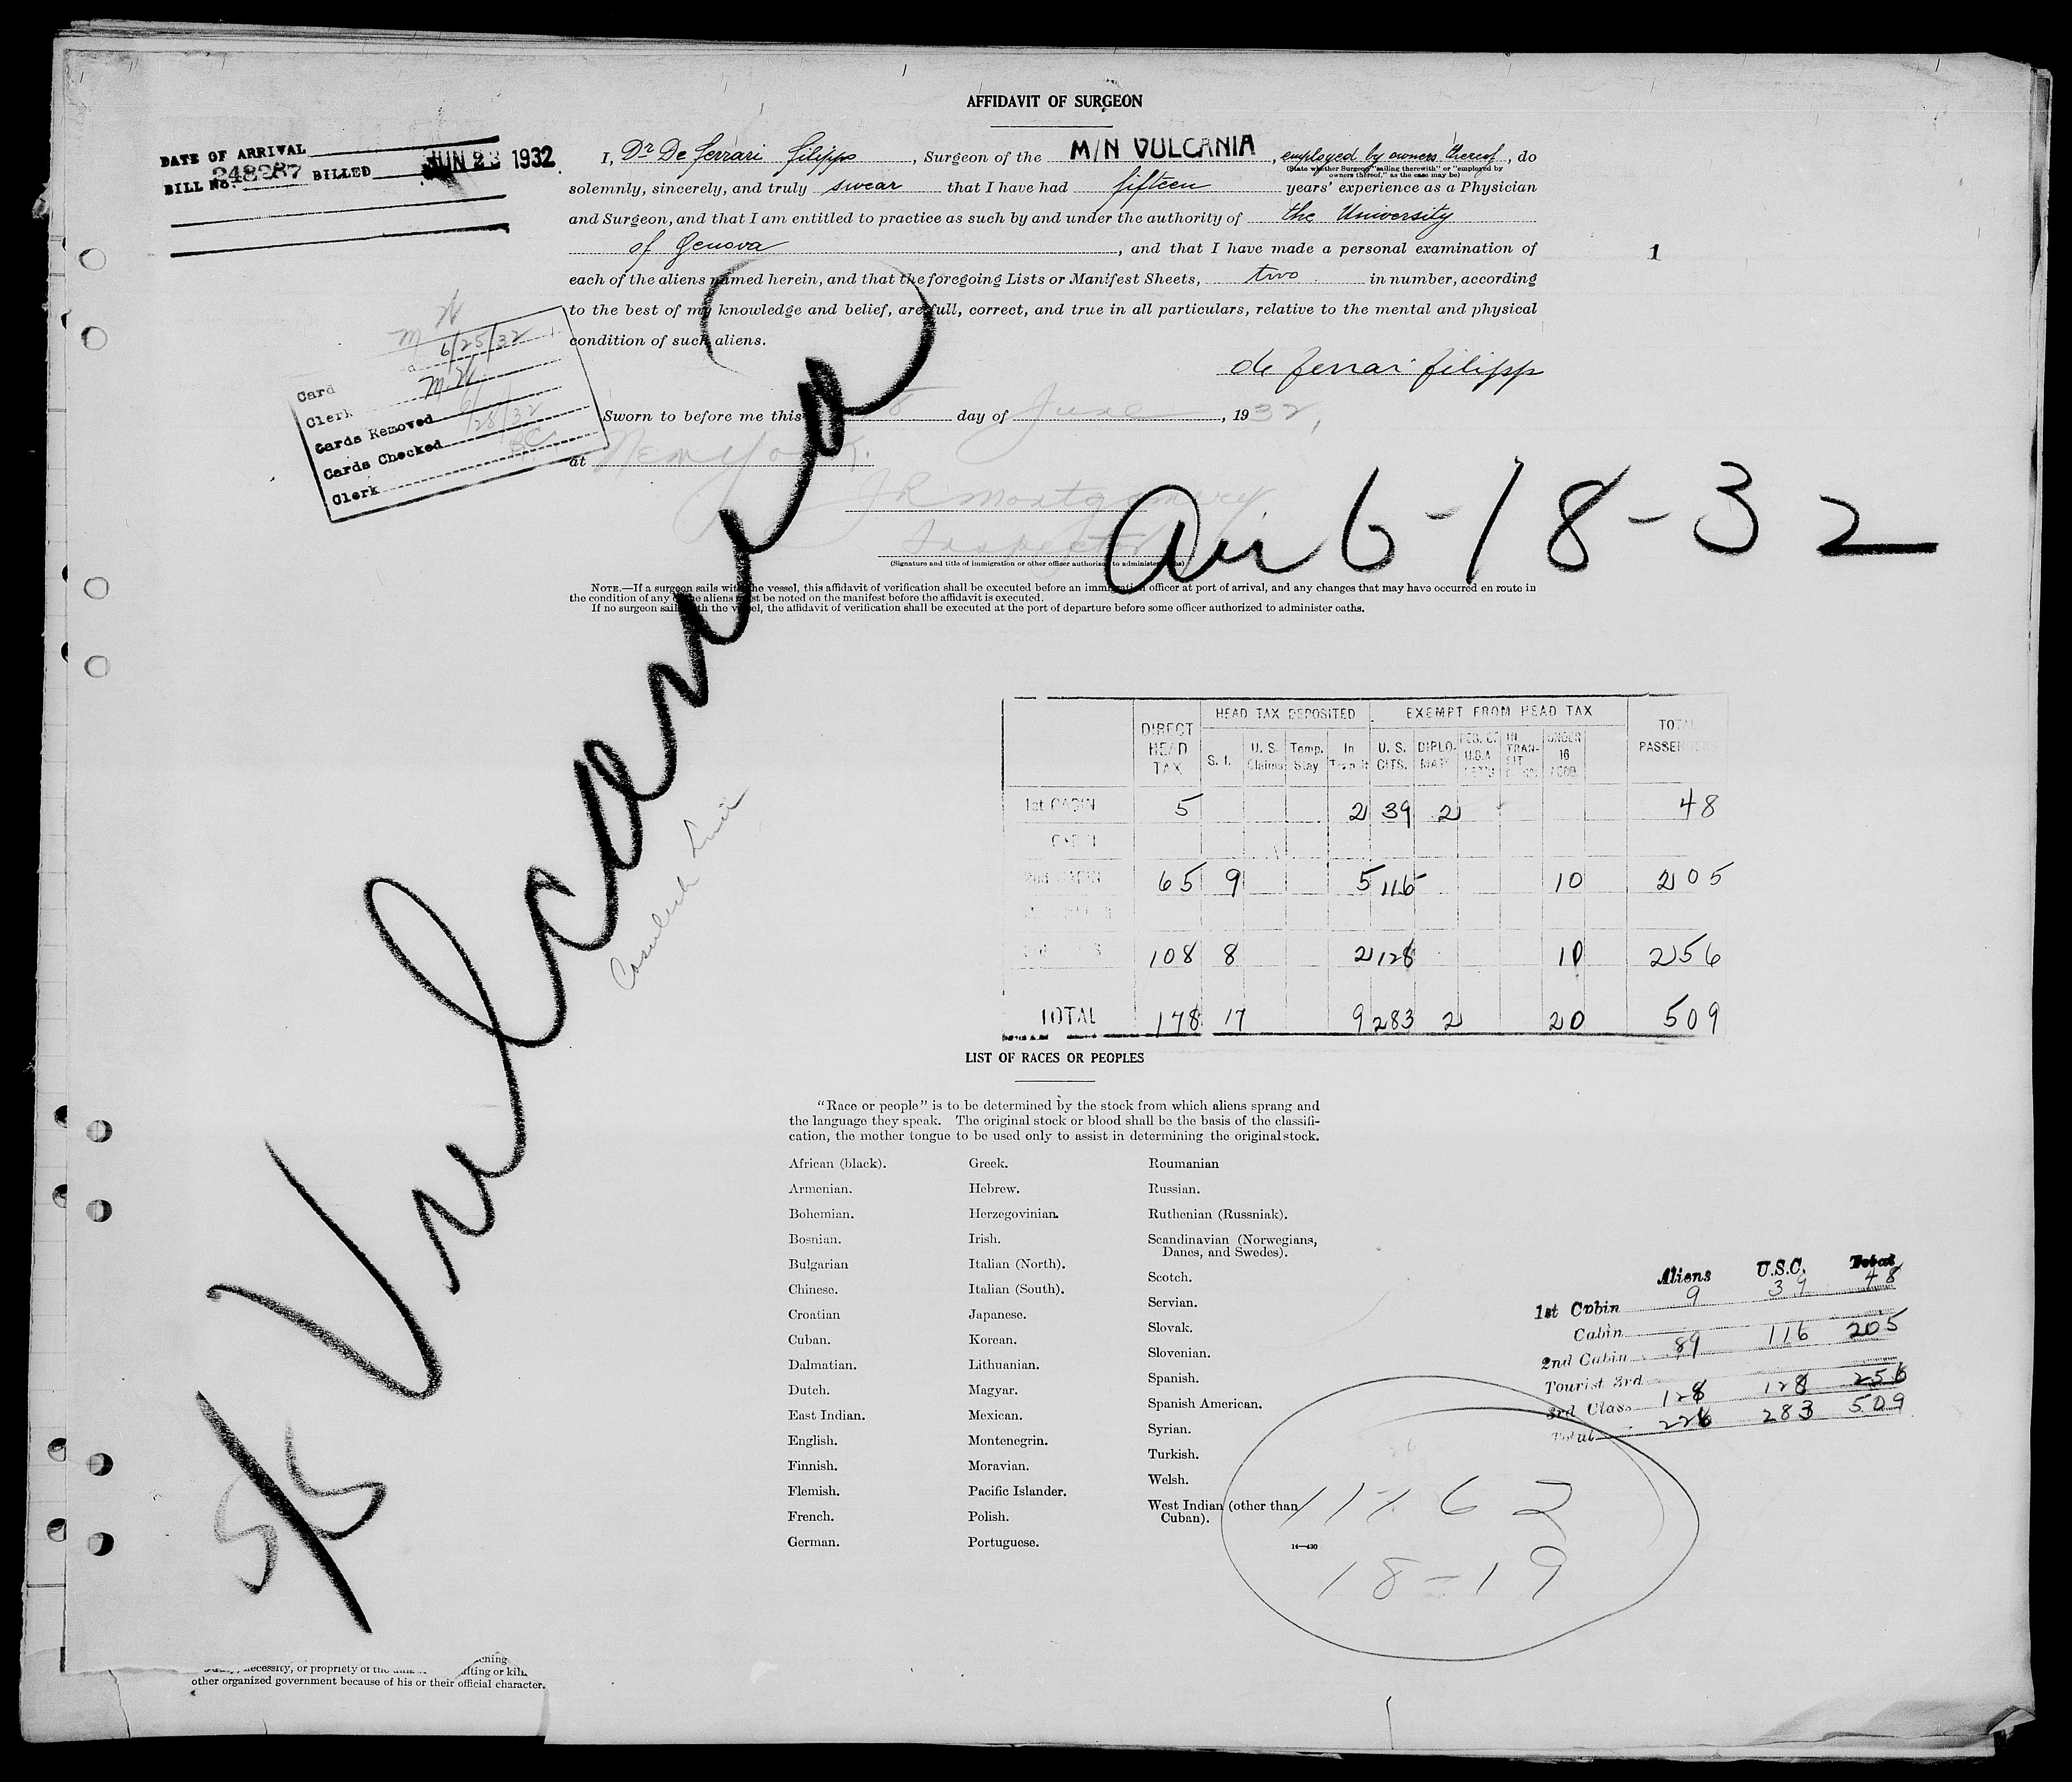 AFFIDAVIT OF SURGEON
DATE OF ARRIVAL
BILL No. 248287 BILLED JUN 23 1932
I, Dr De Ferrari Filippo, Surgeon of the M/N VULCANIA, employed by owners thereof, do
(State whether Surgeon "sailing therewith" or "employed by owners thereof," as the case may be)
solemnly, sincerely, and truly swear that I have had fifteen years' experience as a Physician
and Surgeon, and that I am entitled to practice as such by and under the authority of the University
of Genova, and that I have made a personal examination of
each of the aliens named herein, and that the foregoing Lists or Manifest Sheets, two in number, according
to the best of my knowledge and belief, are full, correct, and true in all particulars, relative to the mental and physical
condition of such aliens.
1
de Ferrari Filipp
Sworn to before me this 8 day of June, 1932,
at New York.
JR Montgomery
Inspector
(Signature and title of immigration or other officer authorized to administer oaths)
6/25/32
Card
Clerk M.H.
Cards Removed
Cards Checked 28/32
Clerk
Arr 6-18-32
NOTE.—If a surgeon sails with the vessel, this affidavit of verification shall be executed before an immigration officer at port of arrival, and any changes that may have occurred en route in
the condition of any of the aliens must be noted on the manifest before the affidavit is executed.
If no surgeon sails with the vessel, the affidavit of verification shall be executed at the port of departure before some officer authorized to administer oaths.
S/S Vulcania
Cosulich Line
DIRECT HEAD TAX HEAD TAX DEPOSITED EXEMPT FROM HEAD TAX TOTAL PASSENGERS
S. I. U. S. Claims Temp. Stay In Transit U. S. CITS. DIPLOMAT RES. OF U.S.A. IN TRANSIT UNDER 16 ACOB.
1st CABIN 5 2 39 2 48
CABIN
2nd CABIN 65 9 5 116 10 205
108 8 2 128 10 256
TOTAL 178 17 9 283 2 20 509
LIST OF RACES OR PEOPLES
"Race or people" is to be determined by the stock from which aliens sprang and
the language they speak. The original stock or blood shall be the basis of the classifi-
cation, the mother tongue to be used only to assist in determining the original stock.
African (black).
Armenian.
Bohemian.
Bosnian.
Bulgarian
Chinese.
Croatian
Cuban.
Dalmatian.
Dutch.
East Indian.
English.
Finnish.
Flemish.
French.
German.
Greek.
Hebrew.
Herzegovinian.
Irish.
Italian (North).
Italian (South).
Japanese.
Korean.
Lithuanian.
Magyar.
Mexican.
Montenegrin.
Moravian.
Pacific Islander.
Polish.
Portuguese.
Roumanian
Russian.
Ruthenian (Russniak).
Scandinavian (Norwegians,
Danes, and Swedes).
Scotch.
Servian.
Slovak.
Slovenian.
Spanish.
Spanish American.
Syrian.
Turkish.
Welsh.
West Indian (other than
Cuban).
14—430
Aliens U.S.C. Total
1st Cabin 9 39 48
Cabin
2nd Cabin 89 116 205
Tourist 3rd
3rd Class 128 128 256
Total 226 283 509
18-19
necessity, or propriety of the
other organized government because of his or their official character.